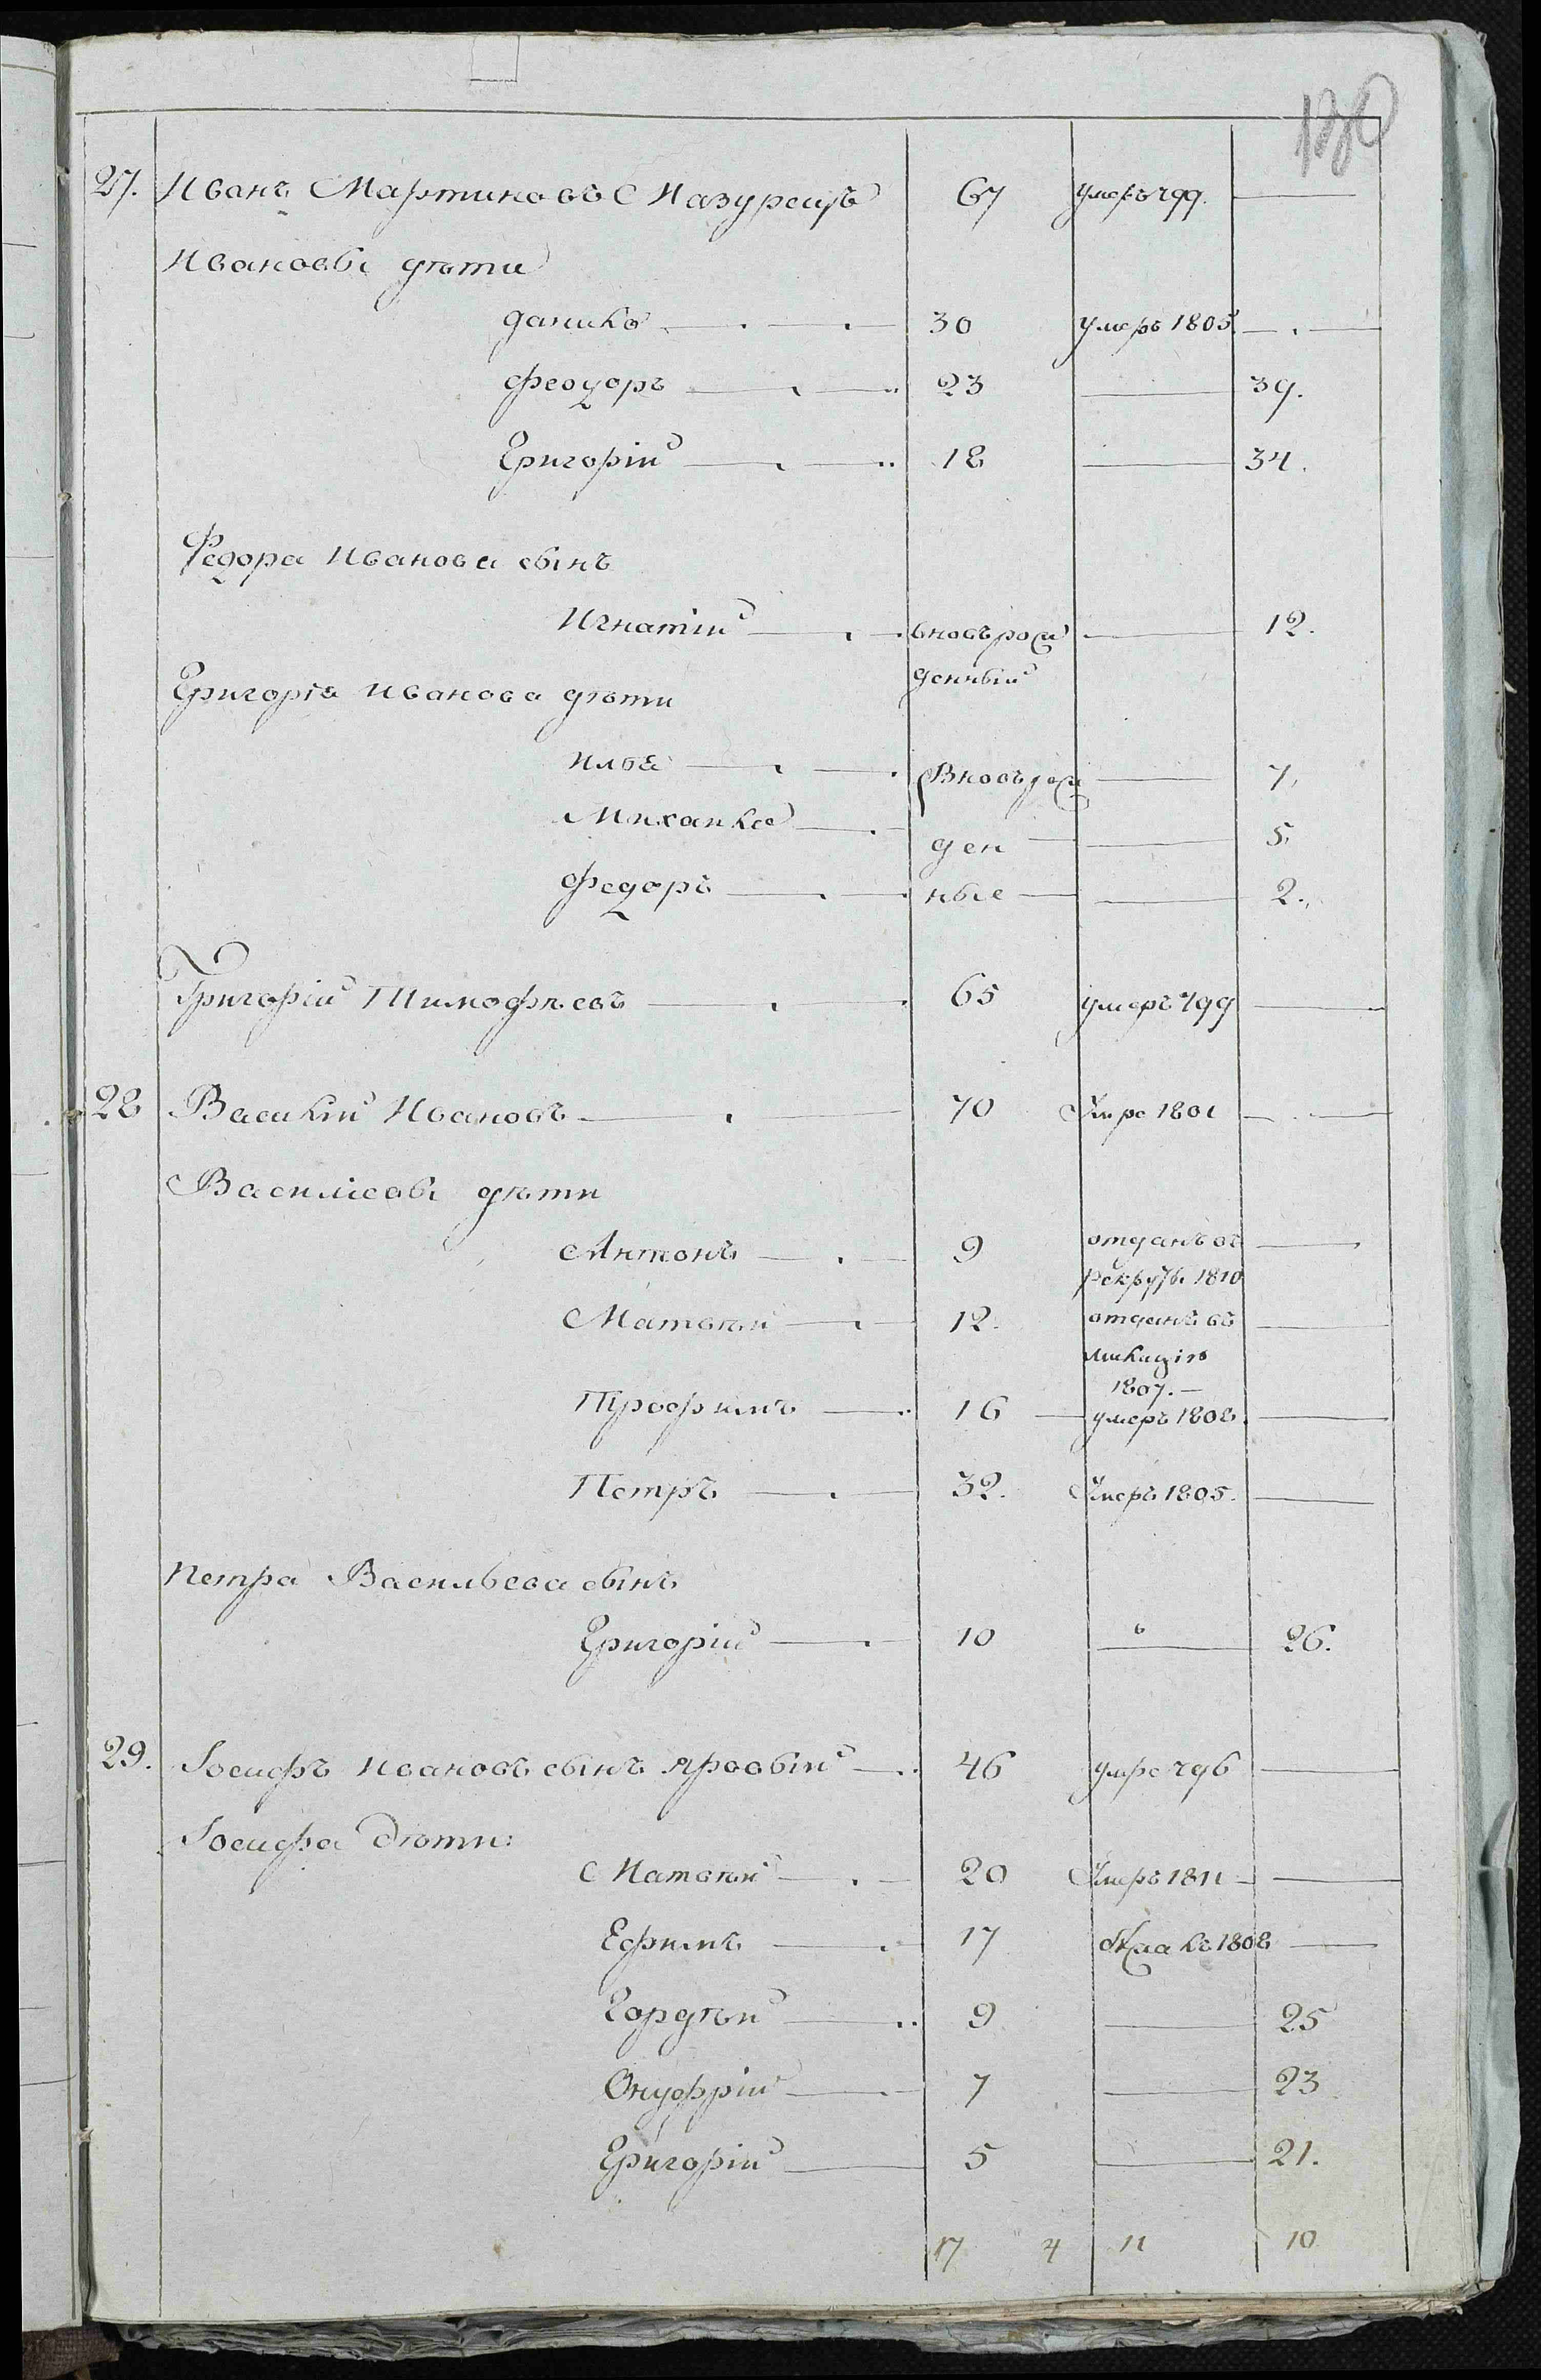 130
27. Иванъ Мартиновъ Мазурецъ 67 умеръ 799.
Ивановы дѣти
Данило 30 умеръ 1805.
Феодоръ 23 39.
Григорій 18 34.
Федора Иванова сынъ
Игнатій вновърож 12.
денный
Григорія Иванова дѣти
Илья Вновърож 7.
Михайла ден 5.
Федоръ ные 2.
Григорій Тимофѣевъ 65 умеръ 799
28 Василій Ивановъ 70 Умре 1801
Василіевы дѣти
Антонъ 9 отданъ въ
рекруты 1810
Матвѣй 12. отданъ въ
милицію
1807.
Трофимъ 16 умеръ 1808.
Петръ 32. Умеръ 1805.
Петра Васильева сынъ
Григорій 10 26.
29. Іосифъ Ивановъ сынъ Яровый 46 умре 796
Іосифа Дѣти:
Матвѣй 20 Умеръ 1811
Ефимъ 17 1808
Гордѣй 9 25
Онуфрій 7 23
Григорій 5 21.
17 4 11 10